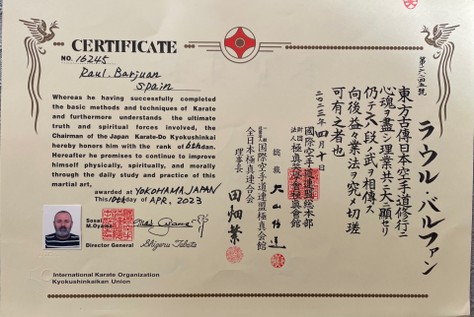 CERTIFICATE
NO. 16245
Raul. Barjuan
Spain
Whereas he having successfully completed
the basic methods and techniques of Karate
and furthermore understands the ultimate
truth and spiritual forces involved, the
Chairman of the Japan Karate-Do Kyokushinkai
hereby honors him with the rank of 6th dan.
Hereafter he promises to continue to improve
himself physically, spiritually, and morally
through the daily study and practice of this
martial art,
awarded at YOKOHAMA JAPAN
This 10th day of APR, 2023
Sosai
M.Oyama
Mas Oyama
Director General Shigeru Tabata
International Karate Organization
Kyokushinkaikan Union
ラウル・バルファン
東方古傳日本空手道修行ニ
心魂ヲ盡シ理業共ニ大ニ顕セリ
仍テ六段ノ武ヲ相傳ス
向後益々業法ヲ究メ切瑳
可有之者也
二〇二三年四月十日
国際空手道連盟総本部
極真奨学会極真會館
総裁 大山倍達
国際空手道連盟極真会館
全日本極真連合会
理事長 田畑繁